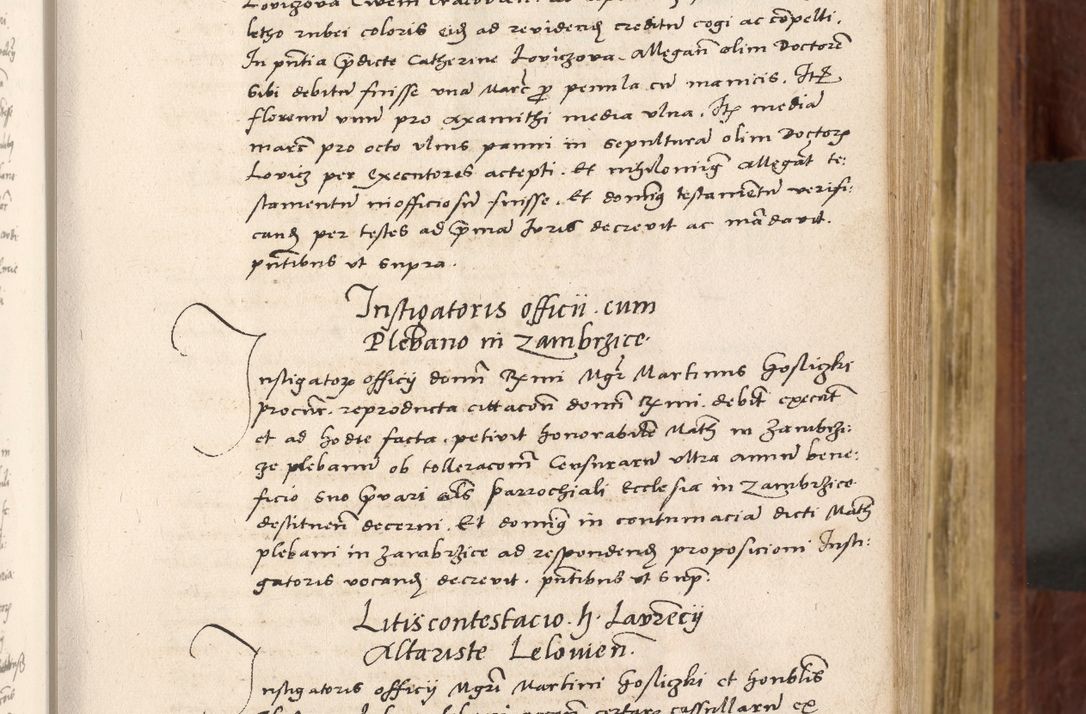 letho rubei coloris eid ad revidend creditu cogi ac copelli.
In pntia pdicte Catherine Lovizowa. Allegan olim Doctore
sibi debitu fuisse una Marc p penula cu manicis. Ite
florenu unu pro axamithi media ulna. It media
marc pro octo ulnis panni in sepultura olim Doctor
Lovicz per Executores accepti. Et nihilomig Allegat te:
stamentu inofficiosu fuisse. Et domig testamentu verifi:
cand per testes ad pma Juris decrevit ac madavit.
pntibus ut supra.
Instigatoris officii. cum
Plebano in Zambrzice.
Instigator officij domi Rxmi Mgr Martinus Gosliczki
procur. reproducta cittacon domi Rxmi. debit executt
et ad hodie facta. petivit honorabile Math in Zambrzi:
ze plebanu ob tolleracom Censuraru ultra annu bene:
ficio suo pvari als parrochiali Ecclesia in Zambrzice
destituen decerni. Et domig in contumacia dicti Math
plebani in Zambrzice ad respondend proposicioni Insti:
gatoris vocand decrevit. pntibus ut sup:
Litis contestacio. h. Laurecij
Altariste Lelovien.
Instigatoris officij Mgri Martini Gosliczki et honblis